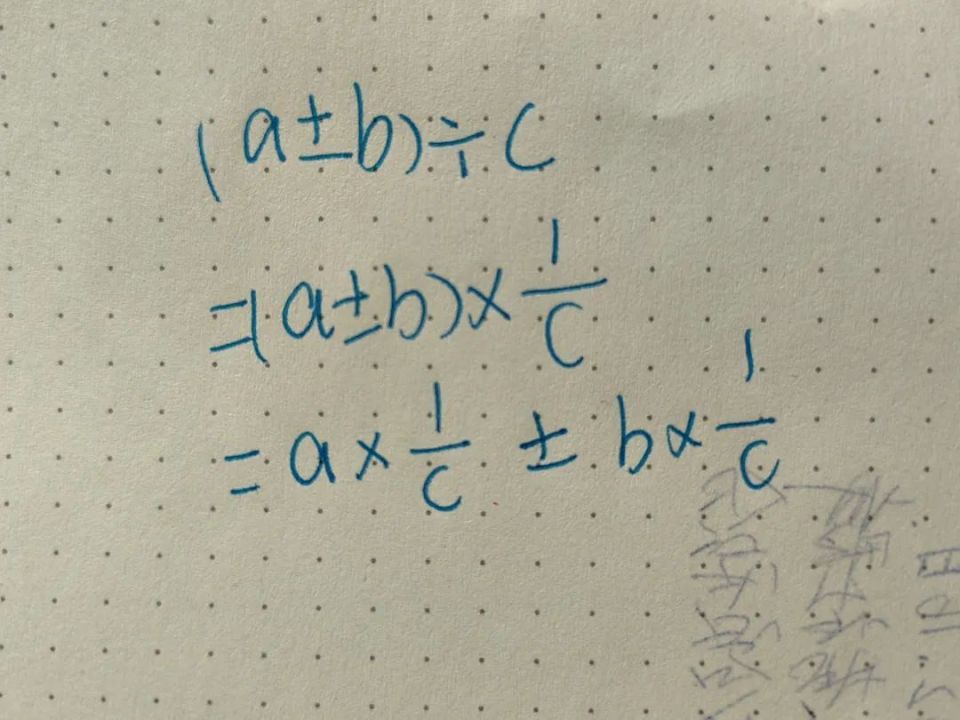 (a±b)÷c
=(a±b)×1/c
=a×1/c ± b×1/c